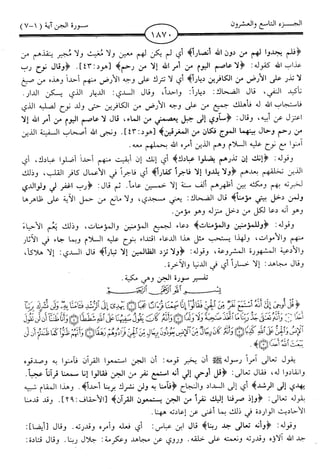 الجزء التاسع والعشرون
١٨٧٠
سورة الجن آية (١-٧)
﴿فلم يجدوا لهم من دون الله أنصاراً﴾ أي لم يكن لهم معين ولا مغيث ولا مجير ينقذهم من
عذاب الله كقوله: ﴿لا عاصم اليوم من أمر الله إلا من رحم﴾ [هود:٤٣]. ﴿وقال نوح رب
لا تذر على الأرض من الكافرين دياراً﴾ أي لا تترك على وجه الأرض منهم أحداً وهذه من صيغ
تأكيد النفي، قال الضحاك: دياراً: واحداً، وقال السدي: الديار الذي يسكن الدار.
فاستجاب الله له فأهلك جميع من على وجه الأرض من الكافرين حتى ولد نوح لصلبه الذي
اعتزل عن أبيه، وقال: ﴿سآوي إلى جبل يعصمني من الماء، قال لا عاصم اليوم من أمر الله إلا
من رحم وحال بينهما الموج فكان من المغرقين﴾ [هود:٤٣]. ونجى الله أصحاب السفينة الذين
آمنوا مع نوح عليه السلام وهم الذين أمره الله بحملهم معه.
وقوله: ﴿إنك إن تذرهم يضلوا عبادك﴾ أي إنك إن أبقيت منهم أحداً أضلوا عبادك، أي
الذين تخلقهم بعدهم ﴿ولا يلدوا إلا فاجراً كفاراً﴾ أي فاجراً في الأعمال كافر القلب، وذلك
لخبرته بهم ومكثه بين أظهرهم ألف سنة إلا خمسين عاماً. ثم قال: ﴿رب اغفر لي ولوالدي
ولمن دخل بيتي مؤمناً﴾ قال الضحاك: يعني مسجدي، ولا مانع من حمل الآية على ظاهرها
وهو أنه دعا لكل من دخل منزله وهو مؤمن.
وقوله: ﴿وللمؤمنين والمؤمنات﴾ دعاء لجميع المؤمنين والمؤمنات، وذلك يعم الأحياء
منهم والأموات، ولهذا يستحب مثل هذا الدعاء اقتداء بنوح عليه السلام وبما جاء في الآثار
والأدعية المشهورة المشروعة، وقوله: ﴿ولا تزد الظالمين إلا تباراً﴾ قال السدي: إلا هلاكاً،
وقال مجاهد: إلا خساراً أي في الدنيا والآخرة.
تفسير سورة الجن وهي مكية.
يقول تعالى آمراً رسوله ﷺ أن يخبر قومه: أن الجن استمعوا القرآن فآمنوا به وصدقوه
وانقادوا له، فقال تعالى: ﴿قل أوحي إلي أنه استمع نفر من الجن فقالوا إنا سمعنا قرآناً عجباً.
يهدي إلى الرشد﴾ أي إلى السداد والنجاح ﴿فآمنا به ولن نشرك بربنا أحداً﴾. وهذا المقام شبيه
بقوله تعالى: ﴿وإذ صرفنا إليك نفراً من الجن يستمعون القرآن﴾ [الأحقاف:٢٩]. وقد قدمنا
الأحاديث الواردة في ذلك بما أغنى عن إعادته ههنا.
وقوله: ﴿وأنه تعالى جد ربنا﴾. قال ابن عباس: أي فعله وأمره وقدرته. وقال [أيضاً]:
جد الله آلاؤه وقدرته ونعمته على خلقه. وروي عن مجاهد وعكرمة: جلال ربنا. وقال قتادة: